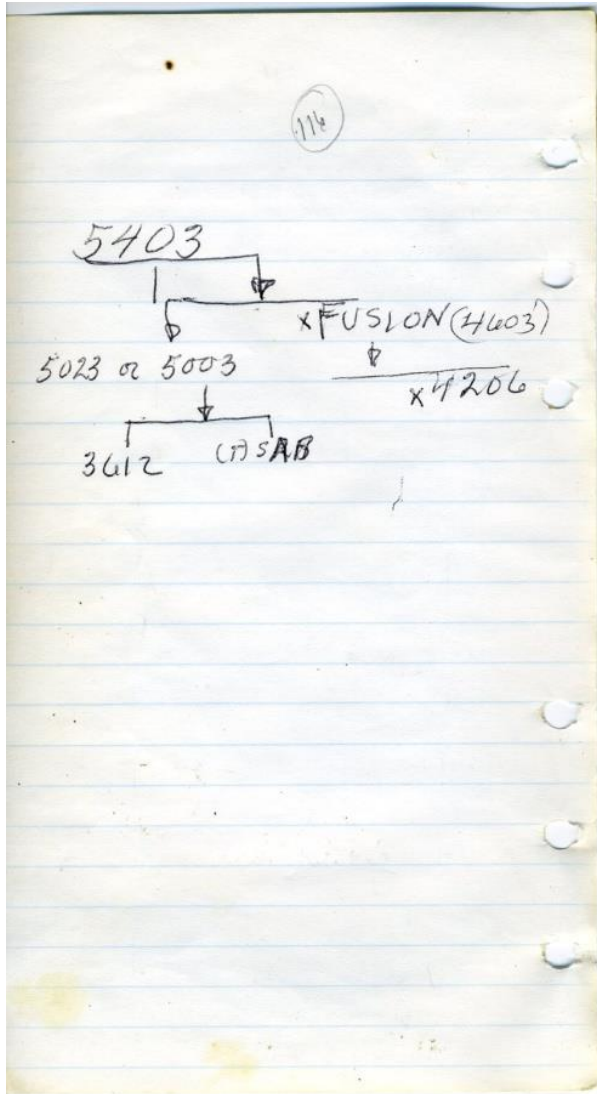 116
5403
x FUSION (4603)
5023 or 5003
x 4206
3612 (T) SAB